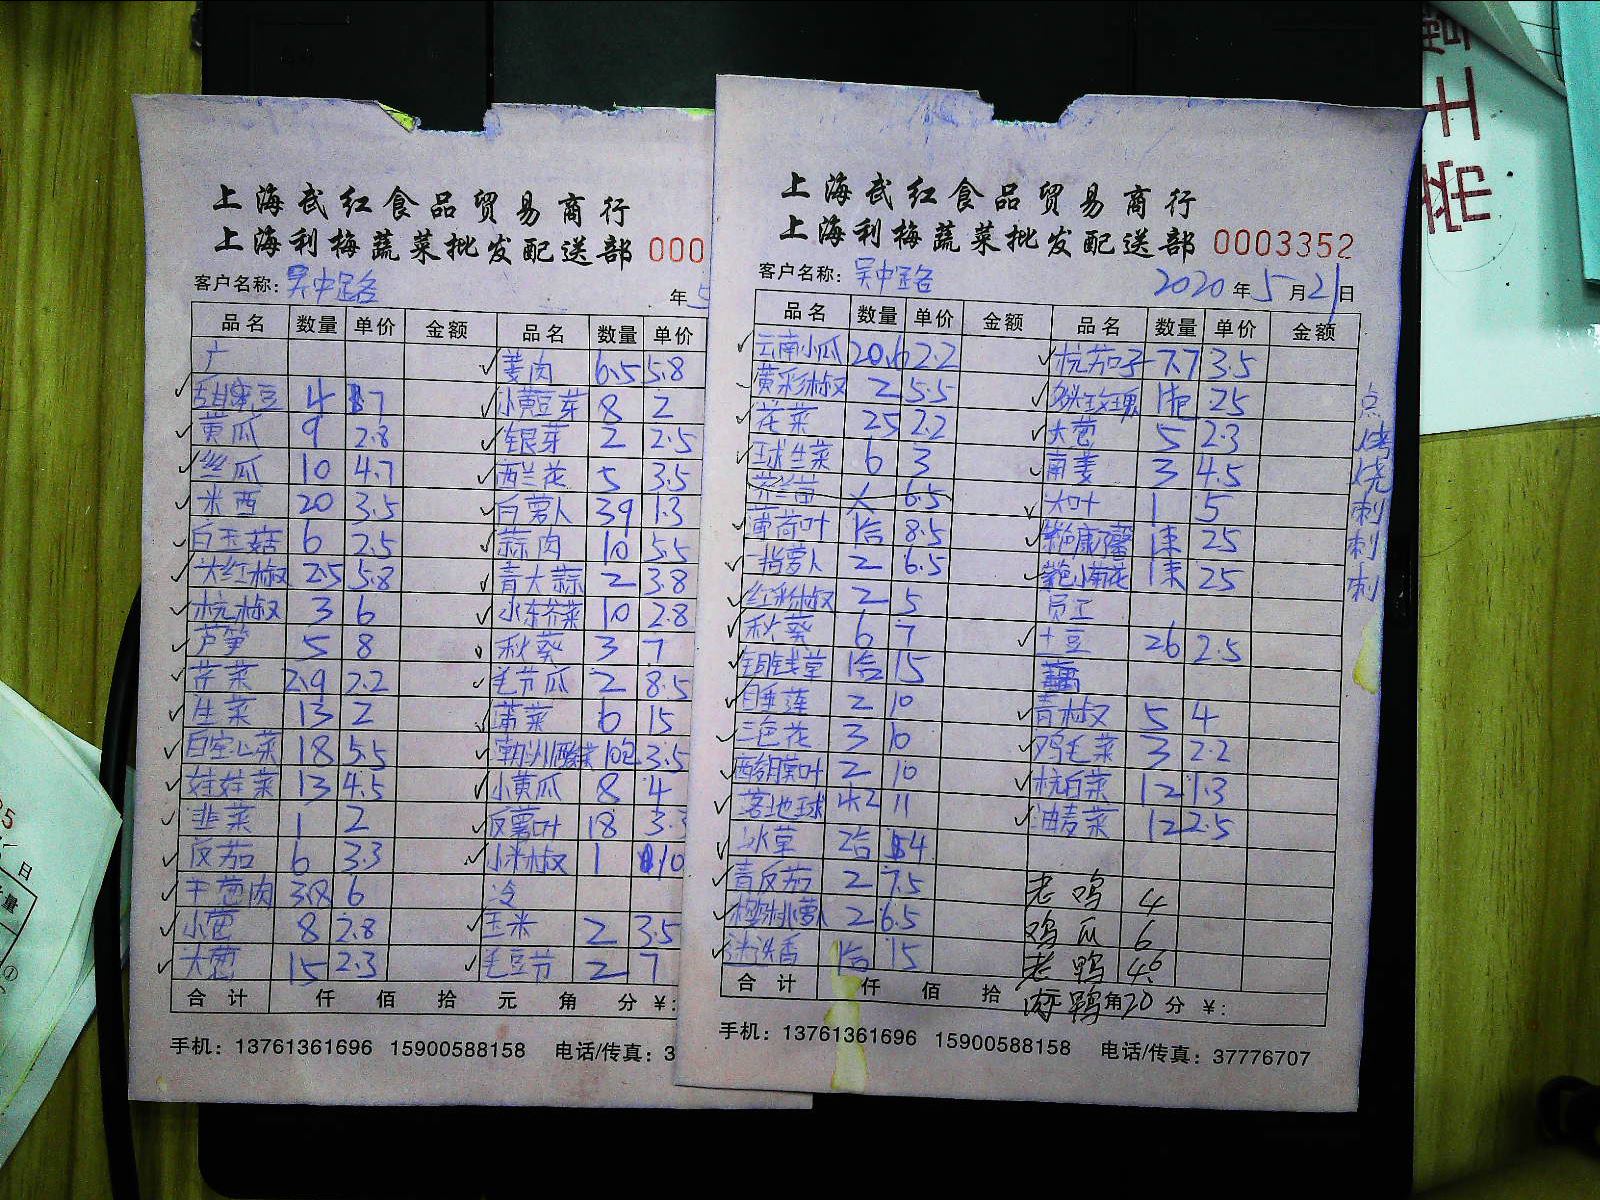 上海武红食品贸易商行
上海利梅蔬菜批发配送部 000
客户名称: 吴中路
年 5
品名 数量 单价 金额 品名 数量 单价
广 姜肉 6.5 5.8
甜蜜豆 4 7 小黄豆芽 8 2
黄瓜 9 2.8 银芽 2 2.5
丝瓜 10 4.7 西兰花 5 3.5
米西 20 3.5 白萝卜 39 1.3
白玉菇 6 2.5 蒜肉 10 5.5
大红椒 25 5.8 青大蒜 2 3.8
杭椒 3 6 水东芥菜 10 2.8
芦笋 5 8 秋葵 3 7
芹菜 2.9 2.2 毛节瓜 2 8.5
生菜 13 2 蒲菜 6 15
白空心菜 18 5.5 潮州酸菜 10包 3.5
娃娃菜 13 4.5 小黄瓜 8 4
韭菜 1 2 反薯叶 18 3.
反茄 6 3.3 小米椒 1 10
干葱肉 38 6 冷
小葱 8 2.8 玉米 2 3.5
大葱 15 2.3 毛豆节 2 7
合计 仟 佰 拾 元 角 分 ¥:
手机: 13761361696 15900588158 电话/传真: 3
上海武红食品贸易商行
上海利梅蔬菜批发配送部 0003352
客户名称: 吴中路 2020年5月21日
品名 数量 单价 金额 品名 数量 单价 金额
云南小瓜 20.6 2.2 杭茄子 7.7 3.5
黄彩椒 2 5.5 多头玫瑰 1包 25 点
花菜 25 2.2 大葱 5 2.3 烤
球生菜 6 3 南姜 3 4.5 烧
芥兰苗 6.5 大叶 1 5 刺
薄荷叶 1合 8.5 紫色康乃馨 1束 25 刺
一指萝卜 2 6.5 紫色小菊花 1束 25 刺
红彩椒 2 5 员工
秋葵 6 7 土豆 26 2.5
铜钱草 1合 15
睡莲 2 10 青椒 5 4
三色花 3 10 鸡毛菜 3 2.2
酸膜叶 2 10 杭白菜 12 1.3
落地球 2 11 油麦菜 12 2.5
冰草 2合 4
青反茄 2 7.5 老鸡 4
樱桃萝卜 2 6.5 鸡爪 6
迷迭香 1合 15 老鸭 4.6
合计 仟 佰 拾 角 分 ¥:
20
手机: 13761361696 15900588158 电话/传真: 37776707